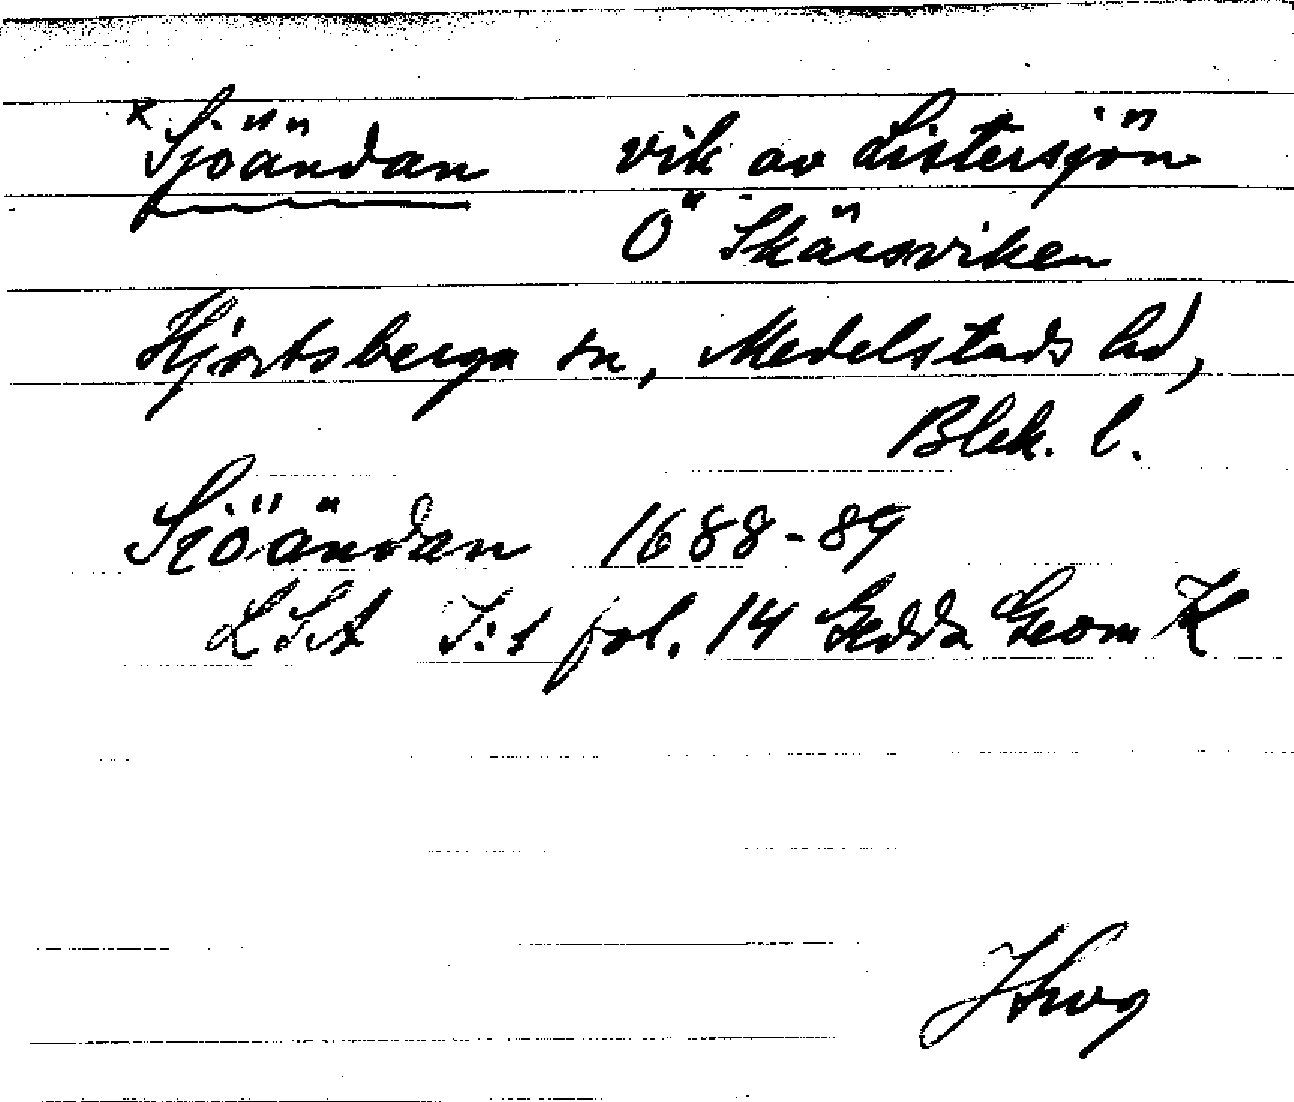 x Sjöändan vik av Listersjön
Ö Skärsviken
Hjortsberga sn, Medelstads hd,
Blek. l.
Sjöändan 1688-89
LSA I:1 fol. 14 Gedda Geom K